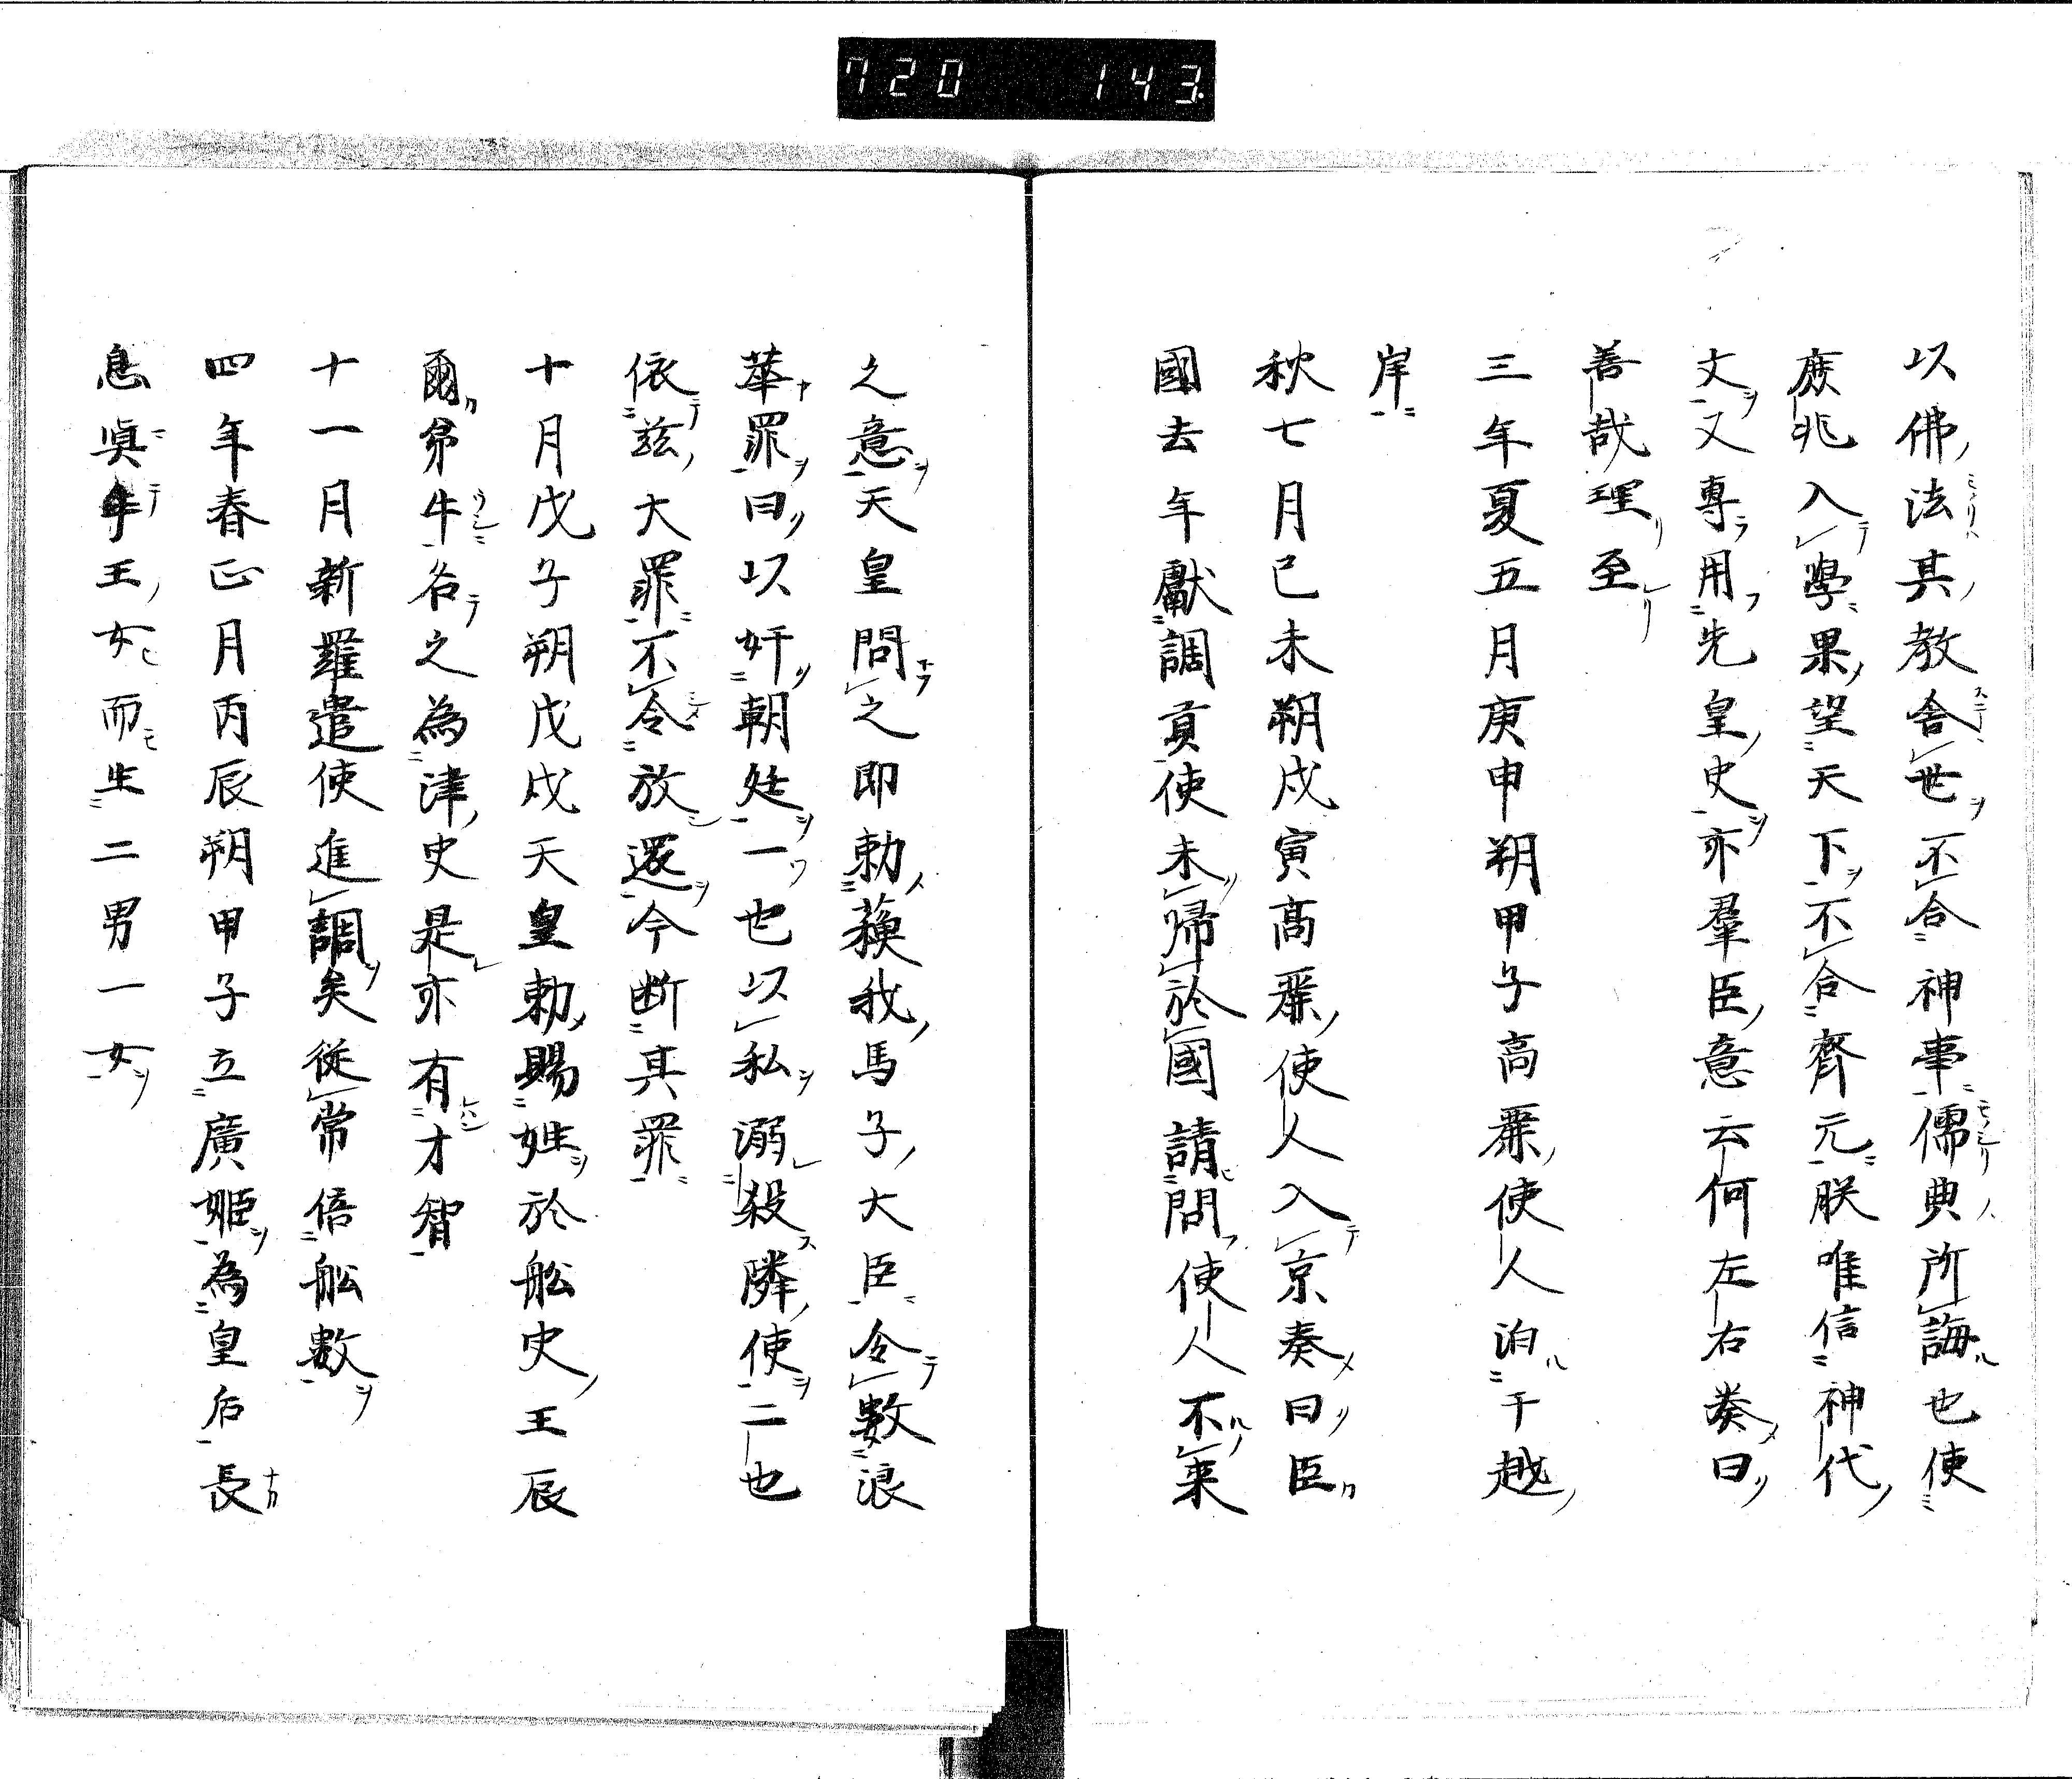 720 143
以佛法其教舎世不合神事儒典所誨也使
庶兆入學果望天下不合齊元朕唯信神代
文又專用先皇史亦羣臣意云何左右奏曰
善哉理至
三年夏五月庚申朔甲子高麗使人泊于越
岸
秋七月己未朔戊寅高麗使人入京奏曰臣
國去年獻調貢使未帰於國請問使人不来
之意天皇問之即勅蘓我馬子大臣令數浪
華罪曰以奸朝廷一也以私溺殺隣使二也
依茲大罪不令放還今断其罪
十月戊子朔戊戌天皇勅賜姓於舩史王辰
爾弟牛名之為津史是亦有才智
十一月新羅遣使進調矣從常倍舩數
四年春正月丙辰朔甲子立廣姫為皇后長
息眞手王女而生二男一女